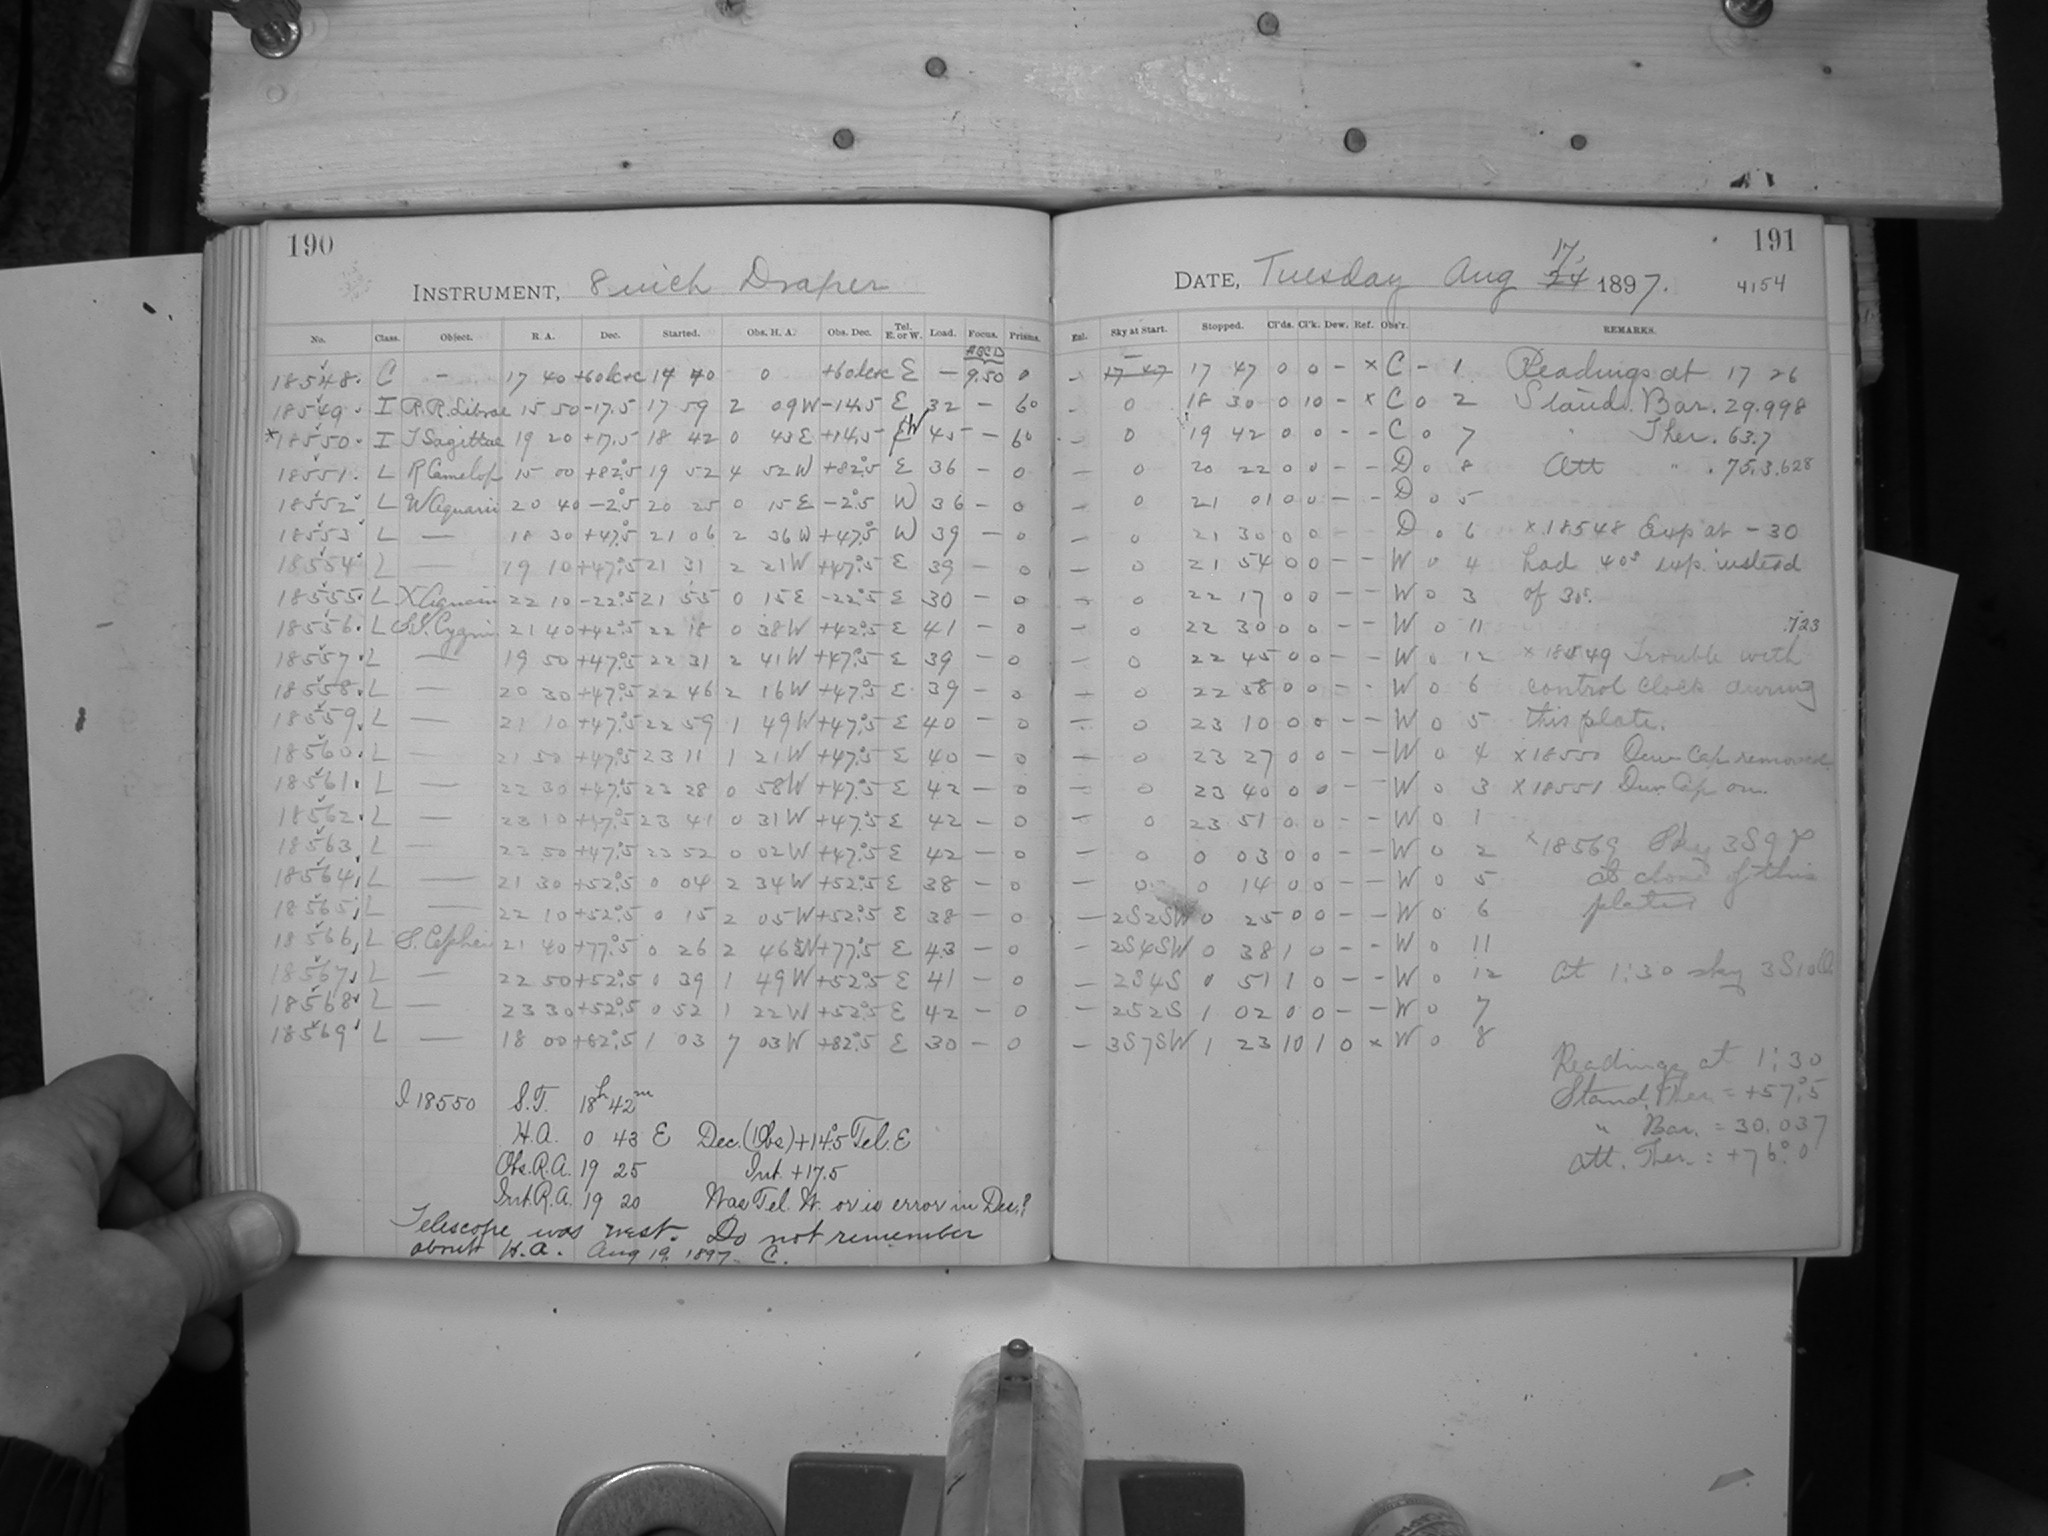 190
INSTRUMENT, 8 inch Draper
No. Class. Object. R. A. Dec. Started. Obs. H. A. Obs. Dec. Tel. E. or W. Load. Focus. Prisms.
ABCD
18548. C — 17 40 +60 &c +c 17 40 0 +60 &c +c E — 9.50 0
18549. I R.R. Librae 15 50 -17.5 17 59 2 09 W -14.5 E 32 — 60
*18550. I T Sagittae 19 20 +17.5 18 42 0 43 E +14.5 E W 45 — 60
18551. L R Camelop 15 00 +82.5 19 52 4 52 W +82.5 E 36 — 0
18552 L W Aquarii 20 40 -2°.5 20 25 0 15 E -2°.5 W 36 — 0
18553 L — 18 30 +47.5 21 06 2 36 W +47°.5 W 39 — 0
18554 L — 19 10 +47°.5 21 31 2 21 W +47°.5 E 39 — 0
18555. L X Aquarii 22 10 -22°.5 21 55 0 15 E -22°.5 E 30 — 0
18556. L S.S. Cygni 21 40 +42°.5 22 18 0 38 W +42°.5 E 41 — 0
18557. L — 19 50 +47°.5 22 31 2 41 W +47°.5 E 39 — 0
18558. L — 20 30 +47°.5 22 46 2 16 W +47°.5 E 39 — 0
18559. L — 21 10 +47°.5 22 59 1 49 W +47°.5 E 40 — 0
18560. L — 21 50 +47°.5 23 11 1 21 W +47°.5 E 40 — 0
18561. L — 22 30 +47°.5 23 28 0 58 W +47°.5 E 42 — 0
18562. L — 23 10 +47°.5 23 41 0 31 W +47°.5 E 42 — 0
18563 L — 23 50 +47°.5 23 52 0 02 W +47°.5 E 42 — 0
18564 L — 21 30 +52°.5 0 04 2 34 W +52°.5 E 38 — 0
18565 L — 22 10 +52°.5 0 15 2 05 W +52°.5 E 38 — 0
18566 L S. Cephei 21 40 +77°.5 0 26 2 46 W +77°.5 E 43 — 0
18567 L — 22 50 +52°.5 0 39 1 49 W +52°.5 E 41 — 0
18568 L — 23 30 +52°.5 0 52 1 22 W +52°.5 E 42 — 0
18569 L — 18 00 +82°.5 1 03 7 03 W +82°.5 E 30 — 0
I 18550 S.T. 18h 42m
H.A. 0 43 E Dec. (Obs) +14°.5 Tel. E
Obs. R.A. 19 25 Int. +17.5
Int. R.A. 19 20 Was Tel. W. or is error in Dec.?
Telescope was west. Do not remember
about H.A. Aug 19, 1897 C.
191
DATE, Tuesday Aug 17, 24 1897.
4154
Enl. Sky at Start. Stopped. Cl'ds. Cl'k. Dew. Ref. Obs'r. REMARKS.
— 17 47 17 47 0 0 — × C — 1 Readings at 17 26
— 0 18 30 0 10 — × C 0 2 Stand. Bar. 29.998
— 0 19 42 0 0 — — C 0 7 " Ther. 63.7
— 0 20 22 0 0 — — D 0 8 Att " . 75.3 .628
— 0 21 01 0 0 — — D 0 5
— 0 21 30 0 0 — D 0 6 × 18548 Exp at -30
— 0 21 54 0 0 — — W 0 4 had 40s exp. instead
— 0 22 17 0 0 — — W 0 3 of 30s.
— 0 22 30 0 0 — — W 0 11 .723
— 0 22 45 0 0 — — W 0 12 × 18549 Trouble with
— 0 22 58 0 0 — — W 0 6 control clock during
— 0 23 10 0 0 — — W 0 5 this plate.
— 0 23 27 0 0 — — W 0 4 × 18550 Dew Cap removed
— 0 23 40 0 0 — — W 0 3 × 18551 Dew Cap on.
— 0 23 51 0 0 — — W 0 1
— 0 0 03 0 0 — — W 0 2 × 18569 Sky 3S9
— 0 0 14 0 0 — — W 0 5 at close of this
— 2S2SW 0 25 0 0 — — W 0 6 plate
— 2S4SW 0 38 1 0 — — W 0 11
— 2S4S 0 51 1 0 — — W 0 12 at 1:30 sky 3S10
— 2S2S 1 02 0 0 — — W 0 7
— 3S7SW 1 23 10 1 0 × W 0 8
Readings at 1:30
Stand. Ther. = +57°.5
" Bar. = 30.037
Att. Ther. = +76°.0